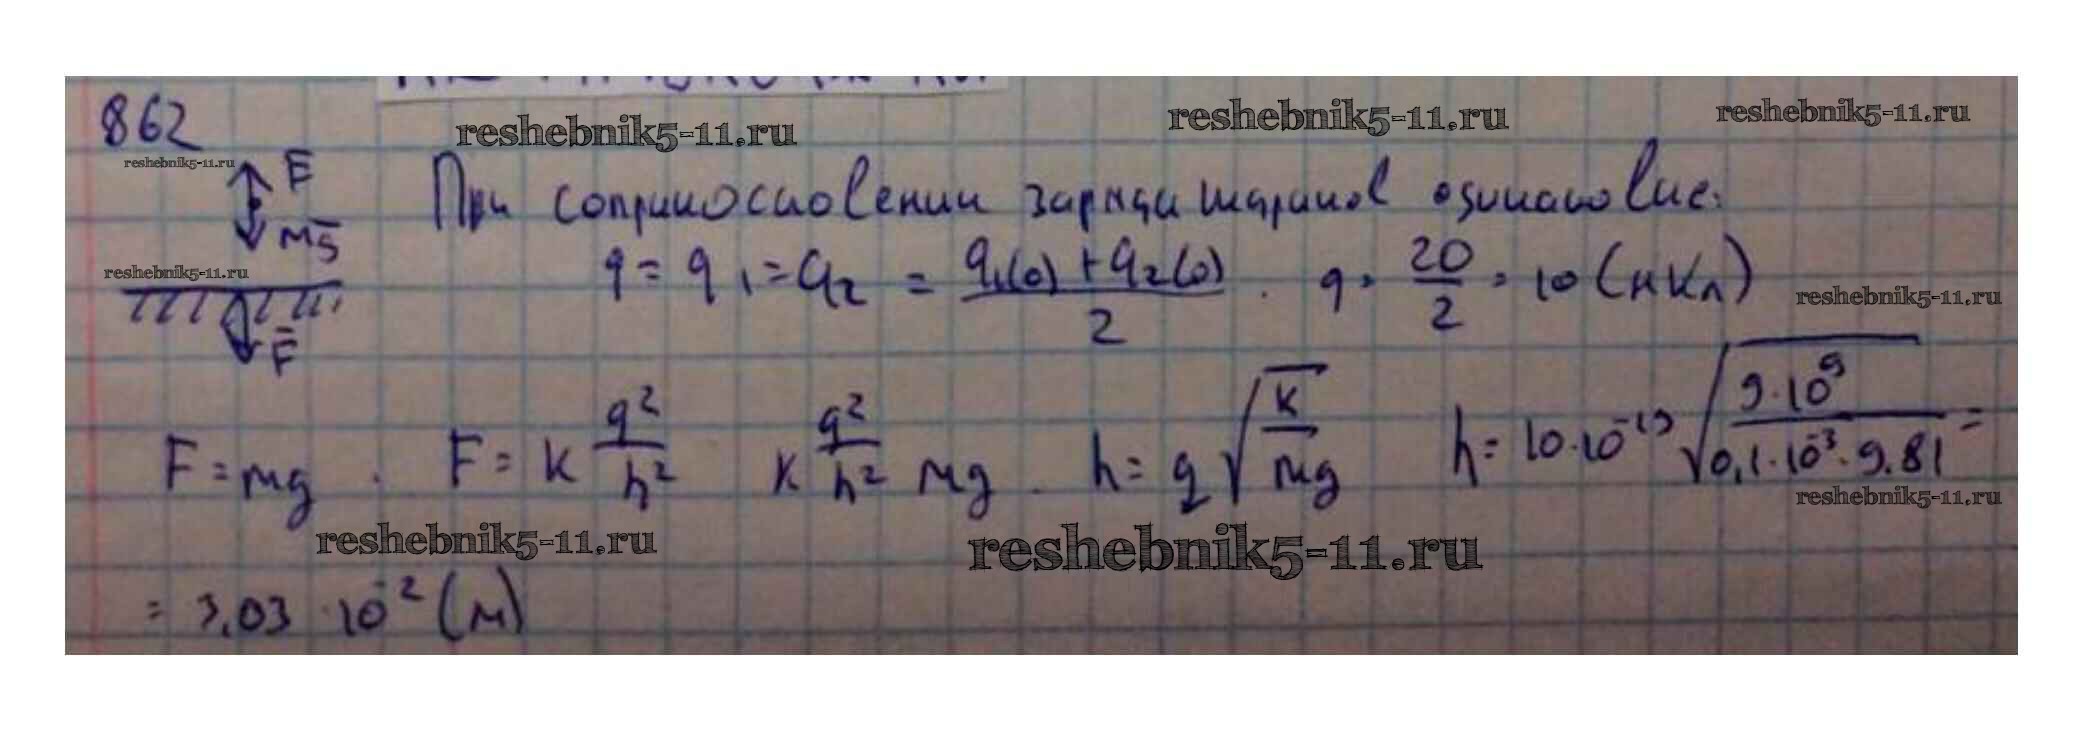 862
reshebnik5-11.ru reshebnik5-11.ru reshebnik5-11.ru
reshebnik5-11.ru
F
mg
При соприкосновении заряды шариков одинаковые:
reshebnik5-11.ru
q = q1 = q2 = (q1(0) + q2(0))/2 . q = 20/2 = 10 (нКл)
reshebnik5-11.ru
F
F = mg . F = k q²/h² k q²/h² mg . h = q √(k/mg) h = 10·10⁻¹⁹ √(9·10⁹/0,1·10⁻³·9.81) =
reshebnik5-11.ru
reshebnik5-11.ru reshebnik5-11.ru
= 3,03 · 10⁻² (м)